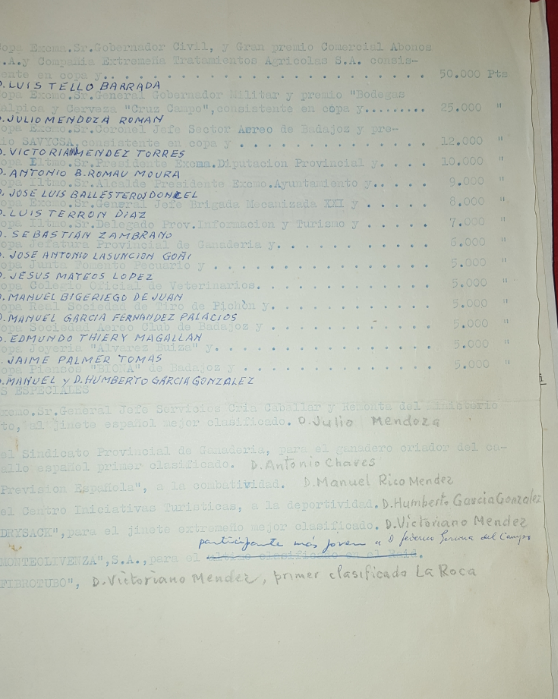 opa Excmo.Sr.Gobernador Civil, y Gran premio Comercial Abonos
S.A.y Compañia Extremeña Tratamientos Agricolas S.A. consis-
ente en copa y. . . . . . . . . . . . . . . . . . . . 50.000 Pts
D. LUIS TELLO BARRADA
opa Excmo.Sr.General Gobernador Militar y premio "Bodegas
y Cerveza "Cruz Campo",consistente en copa y......... 25.000 "
D. JULIO MENDOZA ROMAN
opa Excmo.Sr.Coronel Jefe Sector Aereo de Badajoz y pre-
io SAVTOSA,consistente en copa y . . . . . . . . . . 12.000 "
D. VICTORIANO MENDEZ TORRES
opa Iltmo.Sr.Presidente Excma.Diputacion Provincial y. 10.000 "
D. ANTONIO B. ROMAU MOURA
opa Iltmo.Sr.Alcalde Presidente Excmo.Ayuntamiento y.. 9.000 "
D. JOSE LUIS BALLESTERO DONCEL
opa Excmo.Sr.General Jefe Brigada Mecanizada XXI y . 8.000 "
D. LUIS TERRON DIAZ
opa Iltmo.Sr.Delegado Prov.Informacion y Turismo y . . 7.000 "
D. SEBASTIÁN ZAMBRANO
opa Jefatura Provincial de Ganaderia y. . . . . . . . 6.000 "
D. JOSÉ ANTONIO LASUNCION GOÑI
opa y . . . . . . . . . . 5.000 "
D. JESUS MATEOS LOPEZ
opa Colegio Oficial de Veterinarios. . . . . . . . . . 5.000 "
D. MANUEL BIGERIEGO DE JUAN
opa Real Sociedad de Tiro de Pichón y. . . . . . . . . 5.000 "
D. MANUEL GARCIA FERNANDEZ PALACIOS
opa Sociedad Aereo Club de Badajoz y . . . . . . . . . 5.000 "
D. EDMUNDO THIERY MAGALLAN
opa Joyeria "Alvarez Buiza" y. . . . . . . . . . . . 5.000 "
JAIME PALMER TOMAS
opa Piensos de Badajoz y . . . . . . . . . 5.000 "
D. MANUEL y D. HUMBERTO GARCIA GONZALEZ
S ESPECIALES
Excmo.Sr.General Jefe Servicios Cria Caballar y Remonta del Ministerio
to, al jinete español mejor clasificado. D. Julio Mendoza
el Sindicato Provincial de Ganaderia, para el ganadero criador del ca-
allo español primer clasificado. D. Antonio Chaves
Prevision Española", a la combatividad. D. Manuel Rico Mendez
el Centro Iniciativas Turisticas, a la deportividad. D. Humberto Garcia Gonzalez
DRYSACK",para el jinete extremeño mejor clasificado. D. Victoriano Mendez
participante más joven a D federico del Campo
MONTEOLIVENZA",S.A.,para el ultimo clasificado en el Raid.
FIRMOTUBO", D. Victoriano Mendez, primer clasificado La Roca